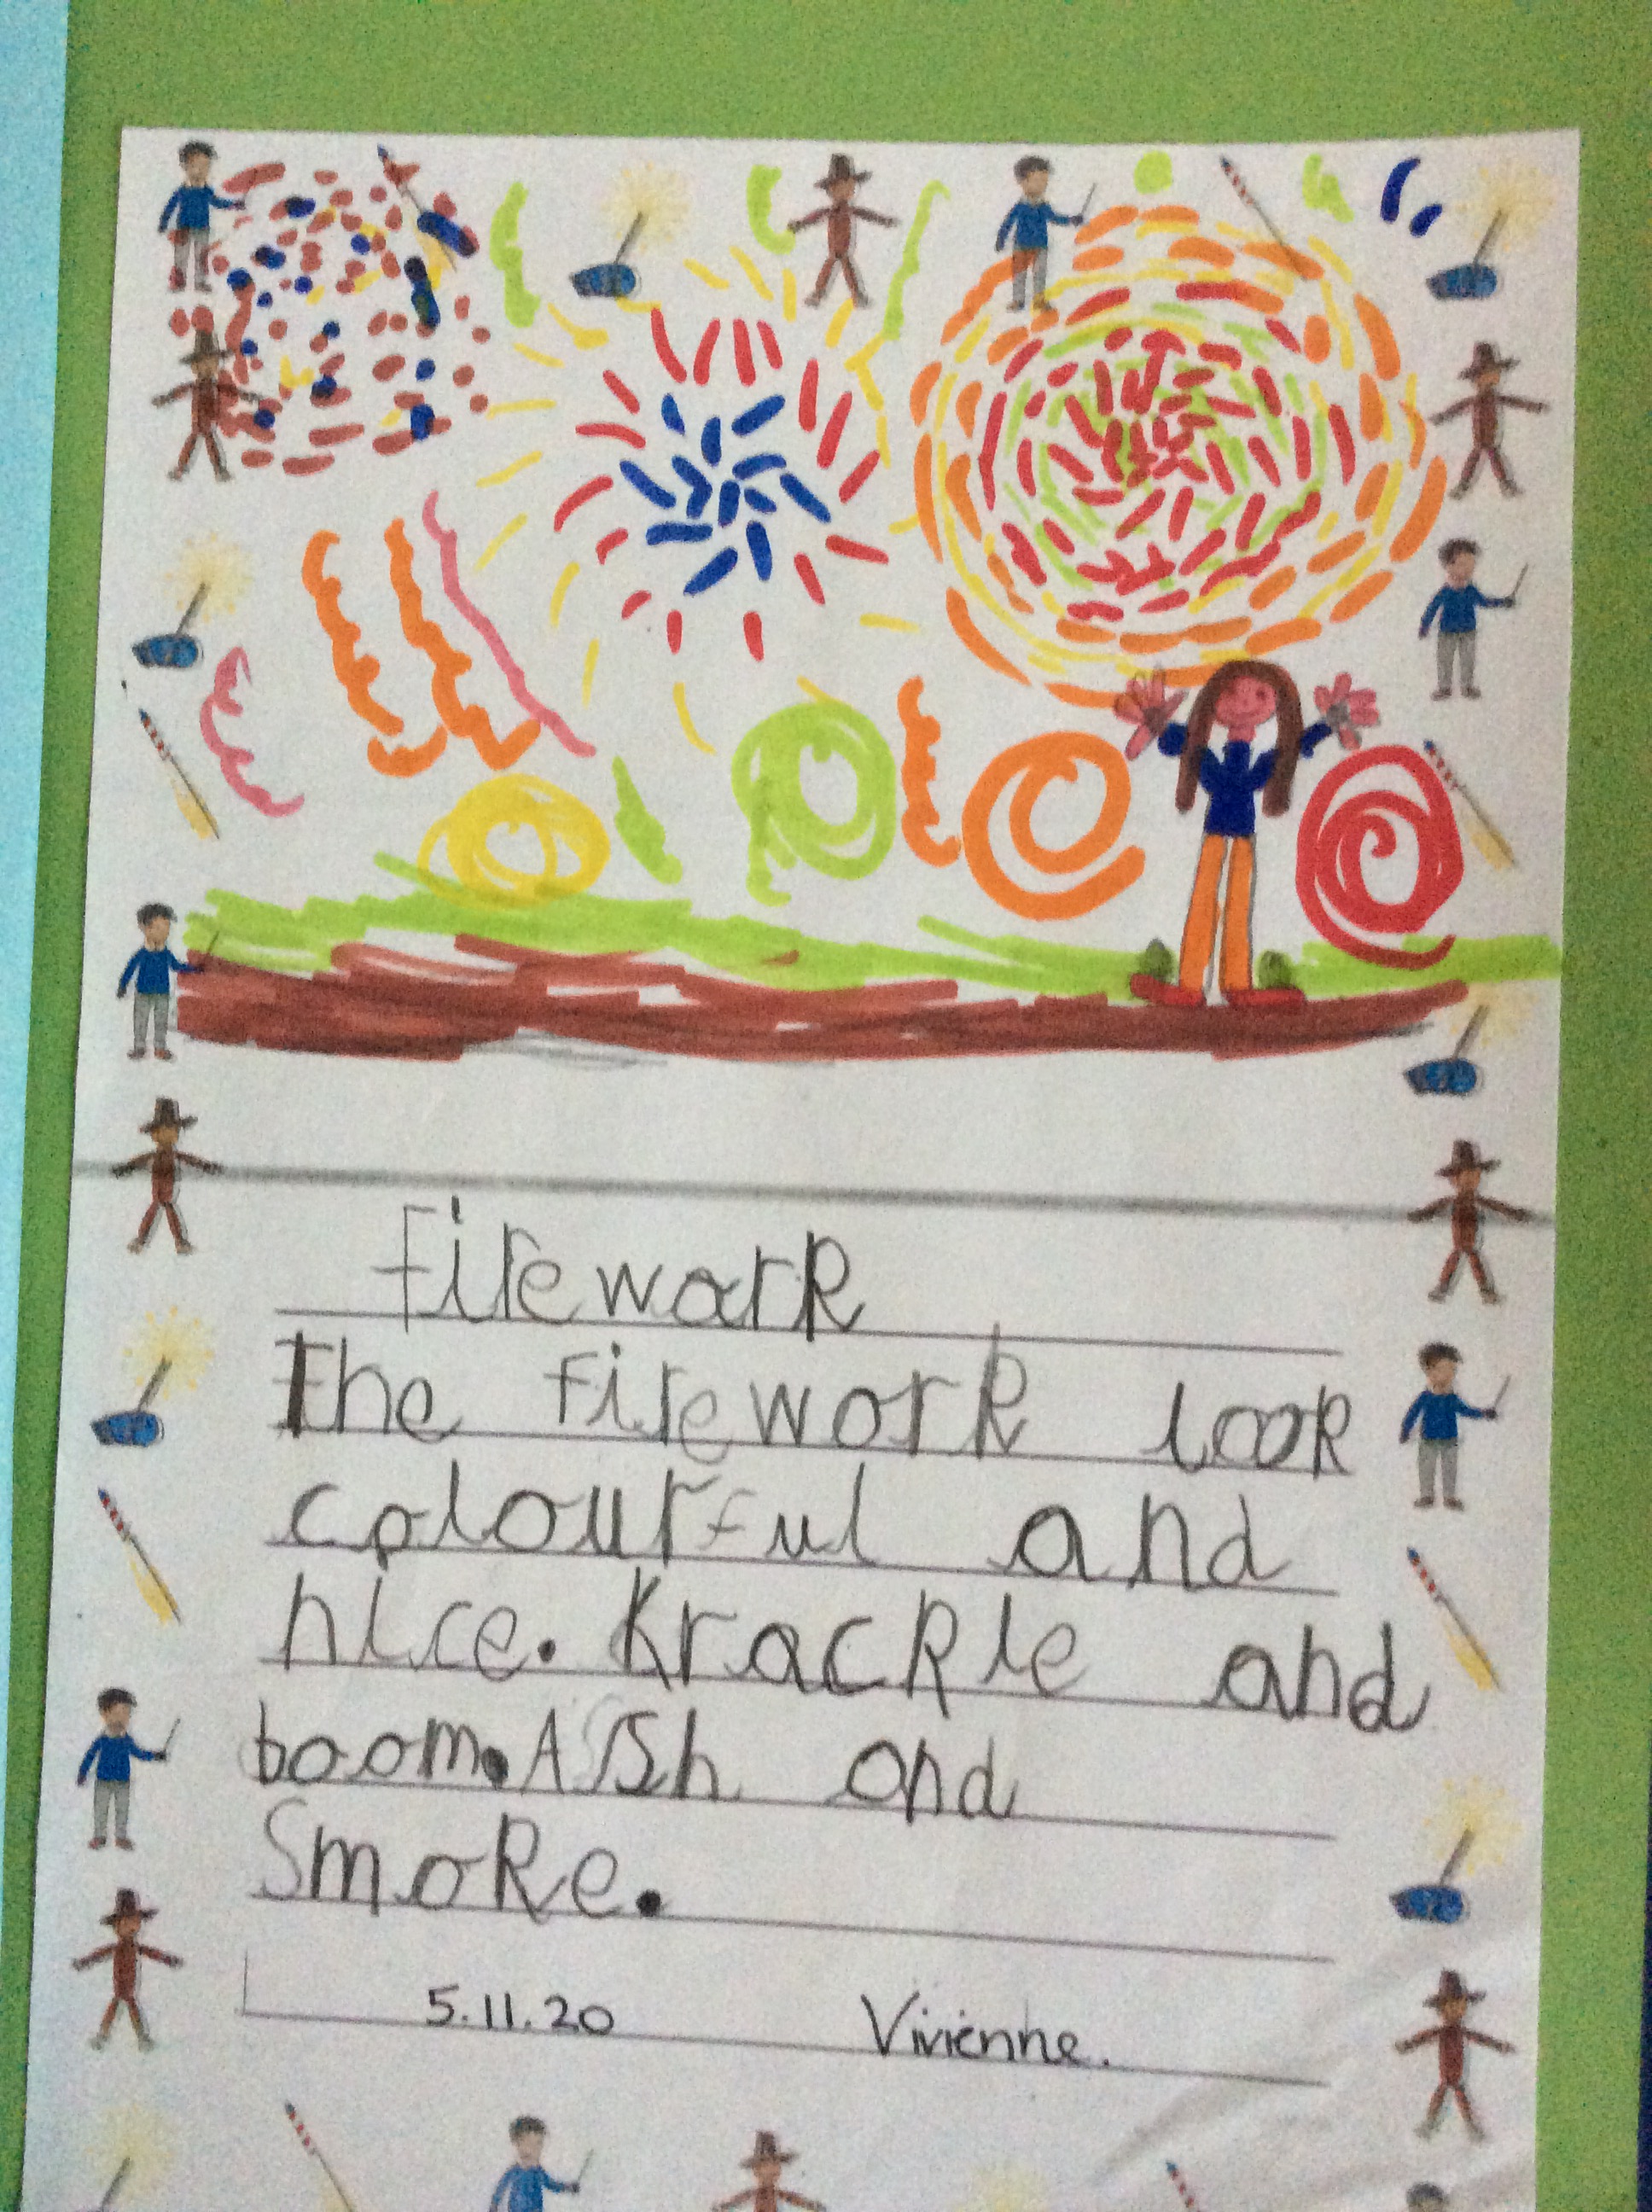 firework
The firework look
colourful and
nice. Krackle and
boom. Assh and
Smoke.
5.11.20 Vivienne.